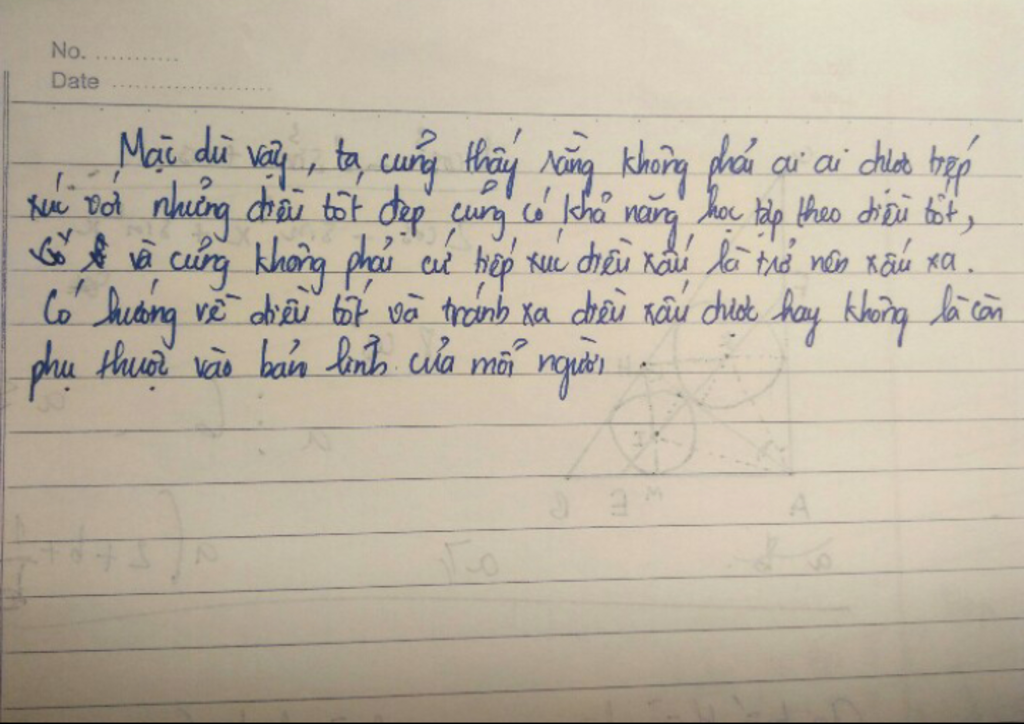 No. ............
Date .......................
Mặc dù vậy, ta cũng thấy rằng không phải ai ai được tiếp
xúc với những điều tốt đẹp cũng có khả năng học tập theo điều tốt,
và cũng không phải cứ tiếp xúc điều xấu là trở nên xấu xa.
Có hướng về điều tốt và tránh xa điều xấu được hay không là còn
phụ thuộc vào bản lĩnh của mỗi người.